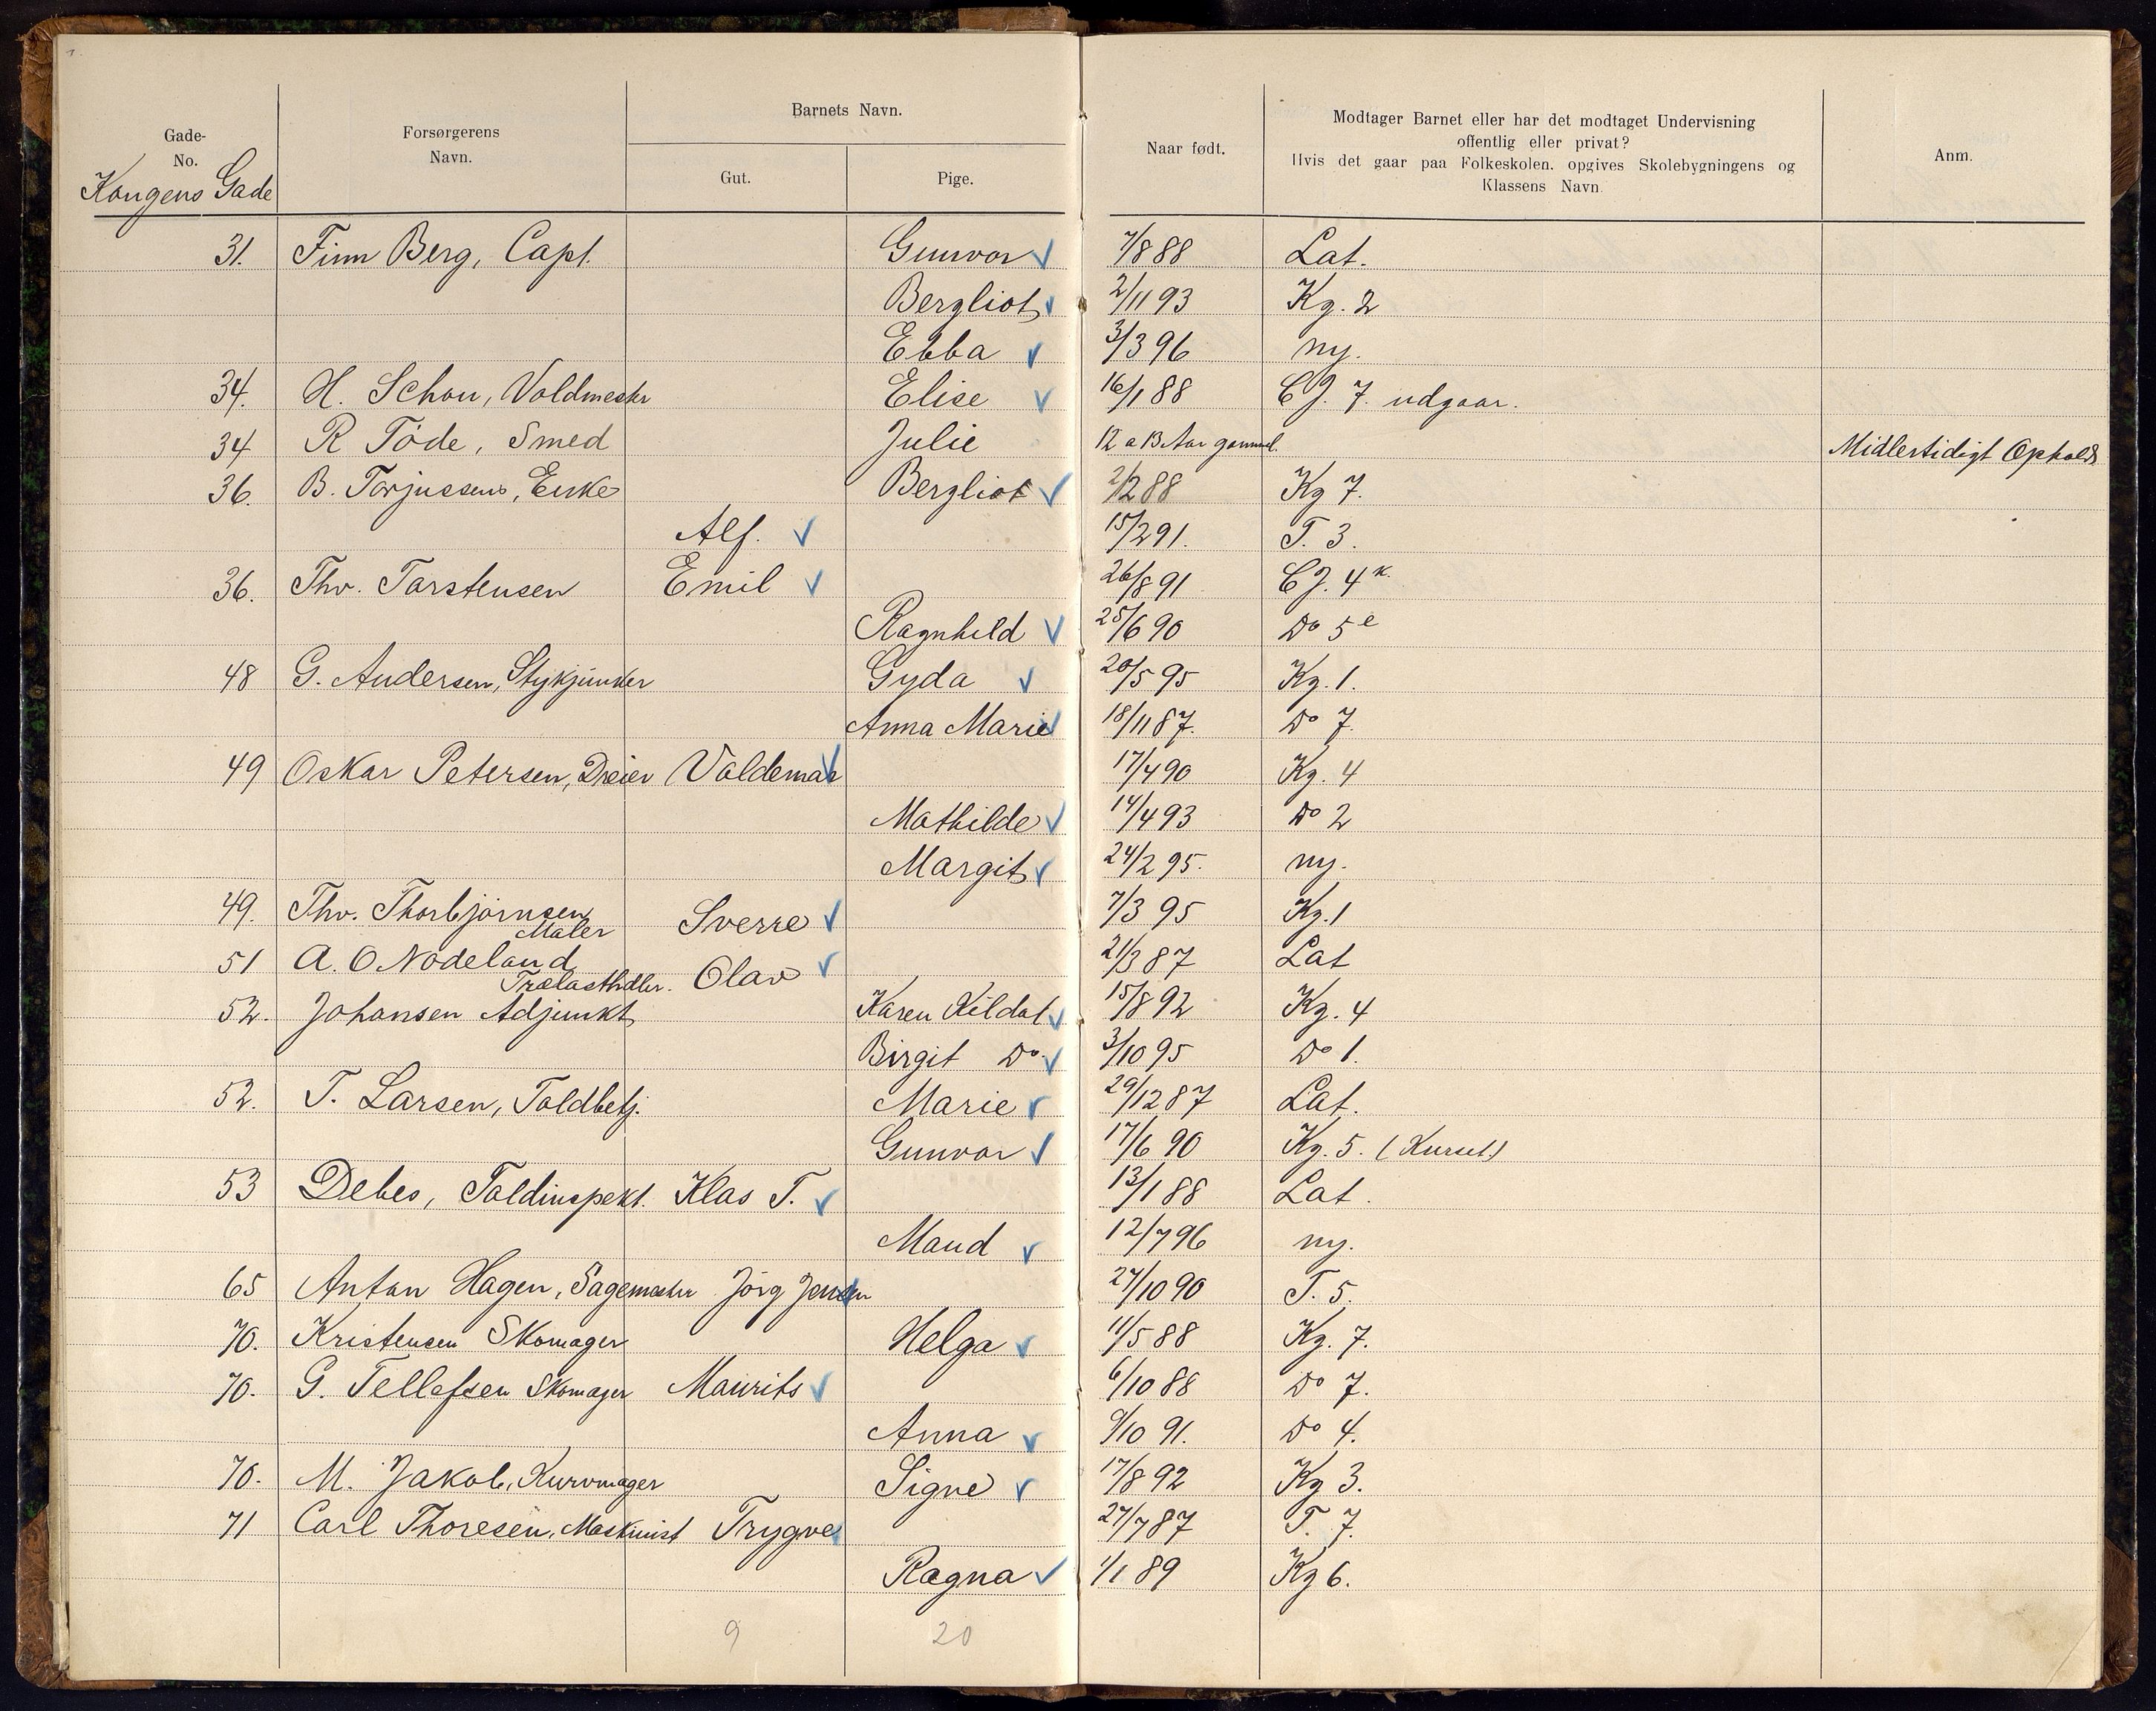 Gade-
No.
Kongens Gade
Forsørgerens
Navn.
Barnets Navn.
Gut.
Pige.
Naar født.
Modtager Barnet eller har det modtaget Undervisning
offentlig eller privat?
Hvis det gaar paa Folkeskolen. opgives Skolebygningens og
Klassens Navn
Anm.
31. Finn Berg, Capt. Gunvor 7/8 88 Lat.
Bergliot 2/11 93 Kg. 2
Ebba 3/3 96 ny.
34. H. Schou, Voldmestr Elise 16/1 88 CJ. 7. udgaar.
34 R Töde, Smed Julie 12 a 13 Aar gammel. Midlertidigt Ophold
36. B. Torjussens, Enke Bergliot 2/2 88 Kg 7.
Alf. 15/2 91. T. 3.
36. Thv. Tarstensen Emil 26/8 91 CJ. 4 k.
Ragnhild 25/6 90 Do 5 e
48 G. Andersen, Stykjunker Gyda 20/5 95 Kg. 1.
Anna Marie 18/11 87. Do 7.
49 Oskar Petersen, Dreier Valdemar 17/4 90 Kg. 4
Mathilde 14/4 93 Do 2
Margit 24/2 95. ny.
49. Thv. Thorbjörnsen
Maler Sverre 7/3 95 Kg. 1
51 A. O Nodeland
Trælasthdlr. Olav 21/3 87 Lat
52. Johansen Adjunkt Karen Kildal 15/8 92 Kg. 4
Birgit Do. 3/10 95 Do 1.
52. T. Larsen, Toldbetj. Marie 29/12 87 Lat.
Gunvor 17/6 90 Kg. 5. (Kurset)
53 Debes, Toldinspekt. Klas T. 13/1 88 Lat.
Maud 12/7 96 ny.
65 Anton Hagen, Sagemester Jörg Jensen 27/10 90 T. 5.
70. Kristensen Skomager Helga 11/5 88 Kg. 7.
70. G. Tellefsen Skomager Maurits 6/10 88 Do 7.
Anna 9/10 91. Do 4.
70. M. Jakob, Kurvmager Signe 17/8 92 Kg 3.
71 Carl Thoresen, Maskinist Trygve 27/7 87 T. 7.
Ragna 1/1 89 Kg 6.
9 20